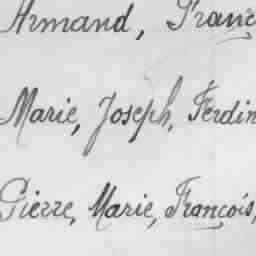 Armand, Franç
Marie, Joseph, Ferdin
Pierre, Marie, François,